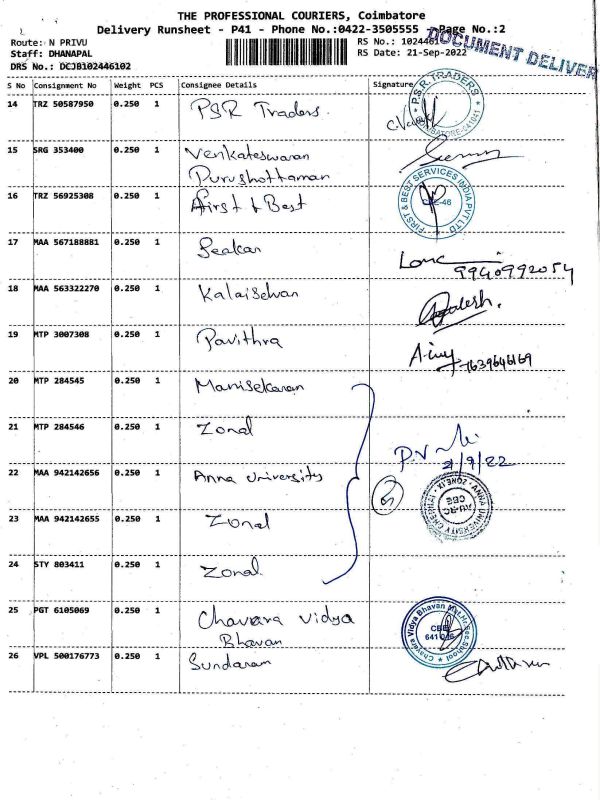 THE PROFESSIONAL COURIERS, Coimbatore
Delivery Runsheet - P41 - Phone No.:0422-3505555 Page No.:2
DOCUMENT DELIVER
Route: N PRIVU RS No.: 10244610
Staff: DHANAPAL RS Date: 21-Sep-2022
DRS No.: DCJB102446102
S No Consignment No Weight PCS Consignee Details Signature
14 TRZ 50587950 0.250 1 PSR Traders
P.S.R. TRADERS COIMBATORE-641041
15 SRG 353400 0.250 1 Venkateswaran
Purushottaman
16 TRZ 56925308 0.250 1 First & Best
FIRST & BEST SERVICES INDIA PVT LTD
17 MAA 567188881 0.250 1 9940992054
18 MAA 563322270 0.250 1 Kalaiselvan
19 MTP 3007308 0.250 1 Pavithra
7639646169
20 MTP 284545 0.250 1 Manisekaran
21 MTP 284546 0.250 1 Zonal
22 MAA 942142656 0.250 1 Anna University
ANNA UNIVERSITY CHENNAI ZONE IX AU-RC CBE
23 MAA 942142655 0.250 1 Zonal
24 STY 803411 0.250 1 Zonal
25 PGT 6105069 0.250 1 Chavara Vidya
Bhavan
Chavara Vidya Bhavan Mat.Hr.Sec.School CBE
26 VPL 500176773 0.250 1 Sundaram